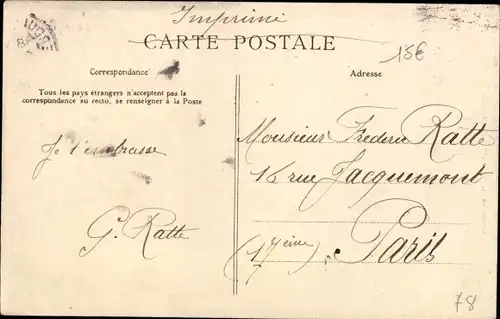 Imprimé
CARTE POSTALE
18€
Correspondance
Adresse
Tous les pays étrangers n'acceptent pas la
correspondance au recto, se renseigner à la Poste
Monsieur Frederic Ratte
Je t'embrasse
16 rue Jacquemont
G. Ratte
Paris
(17eme)
78